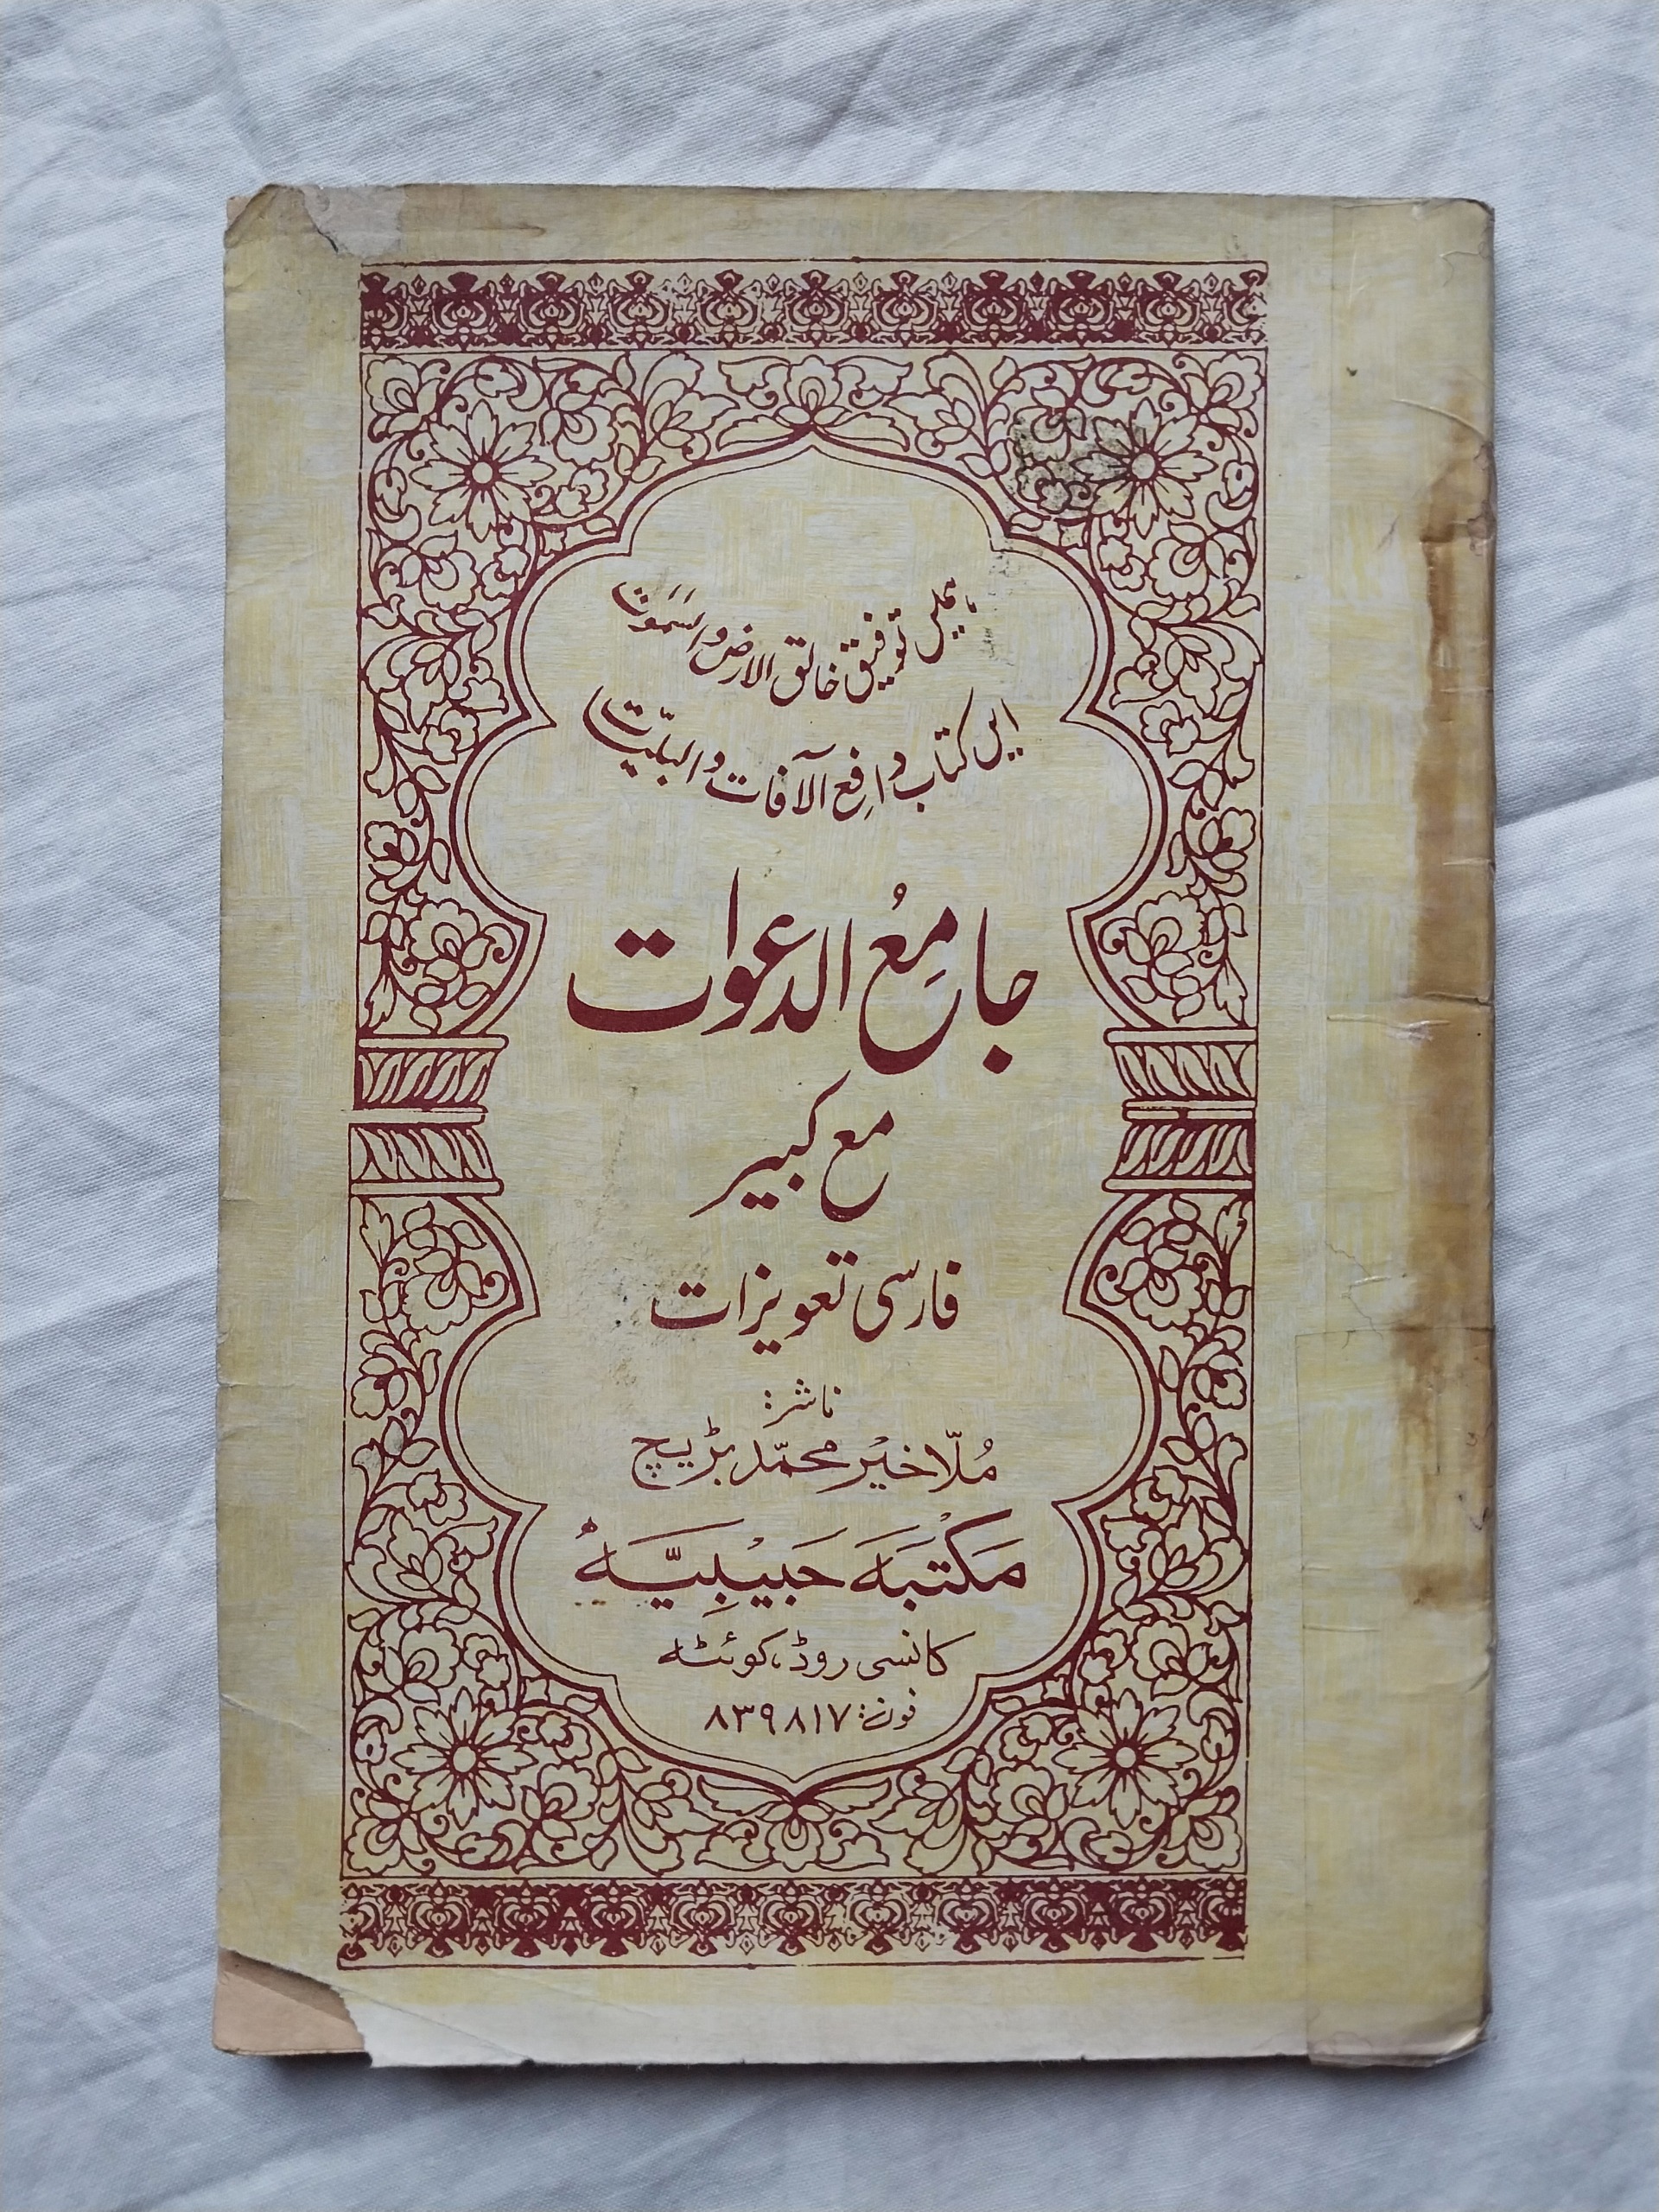 توفیق خالق الارض والسمٰوٰت
ایں کتاب دافع الآفات والبلیّات
جامِعُ الدعوات
مع کبیر
فارسی تعویزات
ناشر:
مُلّا خیْر محمّد بڑیچ
مَکتبَہ حَبیْبِیَّہُ
کانسی روڈ، کوئٹہ
فون: ۸۳۹۸۱۷